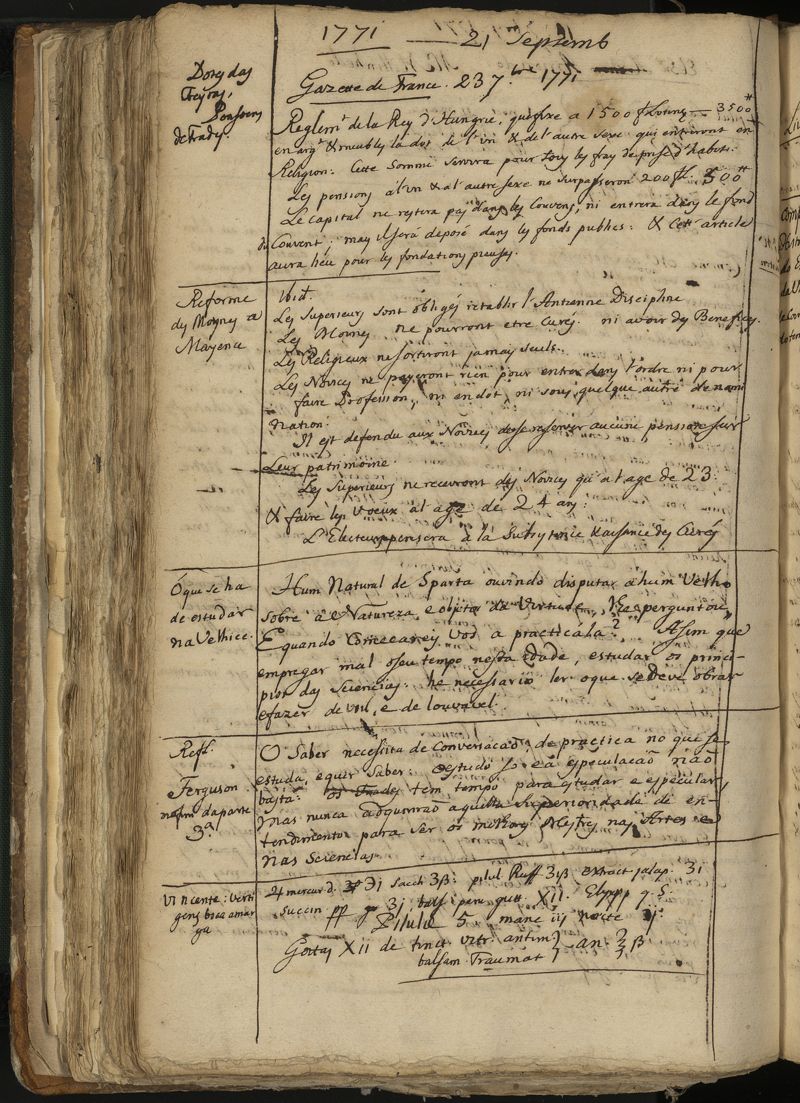 1771 — 21 Septemb
Gazette de France. 23 7.bre 1771
Dotes das
Freyras,
Pensoens
de Frades.
Reglemt. de la Rey d'Hungrie, qui fixe a 1500 fl — 3500#
en argt. & meubles la dot de l'un & de l'autre sexe qui entreront en
Religion: Cette Somme servira pour touts les fray de prise d'habits.
Les pensions à l'un & a l'autre sexe ne surpasseront 200 fl. 500#
Le Capital ne restera pas dans les Couvens, ni entrera dans le fond
du Couvent; mays il sera deposé dans les fonds publics: & Cett' article
aura lieu pour les fondations pieuses.
Reforme
des Moynes a
Mayence
Ibid.
Les Superieurs sont obligés retablir l'Antienne Discipline
Les Moines ne pourront etre Curés ni avoir des Benefices.
Les Religieux ne sortiront jamays seuls.
Les Novices ne payeront rien pour entrer dans l'ordre ni pour
faire Profession, ni en dot, ni sous quelque autre denomi
nation.
Il est defendu aux Novices de se reserver aucune pension sur
Leur patrimoine.
Les Superieurs ne recevront des Novices qu'a l'age de 23.
& faire les Voeux à l'age de 24 ans:
L'Electeur pensera à la Subsistence des Curés
O que se ha
de estudar
na Velhice.
Hum Natural de Sparta ouvindo disputar a hum Velho
sobre a Natureza, e objeto da Virtude, lhe perguntou,
E quando comecareis vos a practicála? Asim que
empregar mal o seu tempo nesta edade, estudar os princi-
pios das Sciencias. he necessario ler o que se deve obrar
e fazer de util, e de louvavel.
Refl.
e Ferguson
no fim da parte
3ª
O Saber necessita de Conversacaõ, de practica no que se
estuda, e quer Saber: o estudo só e a especulacaõ não
basta: os Frades tem tempo para estudar e especular,
mas nunca adquiriraõ aquella Superioridade de en-
tendimento para ser os melhores Mestres nas Artes e
nas Sciencias.
Vincente: verti
gens boca amar
ga
♃ mercur. d. ℈j Sacch ʒß: pilul Ruff ʒiß extract jalap. ʒi
Succin ʒj balf peru gutt XII. q. S.
Pilulæ 5. mane iij nocte ij
Gottas XII de tinct. vitr. antim } an. ʒß
balsam. Traumat }